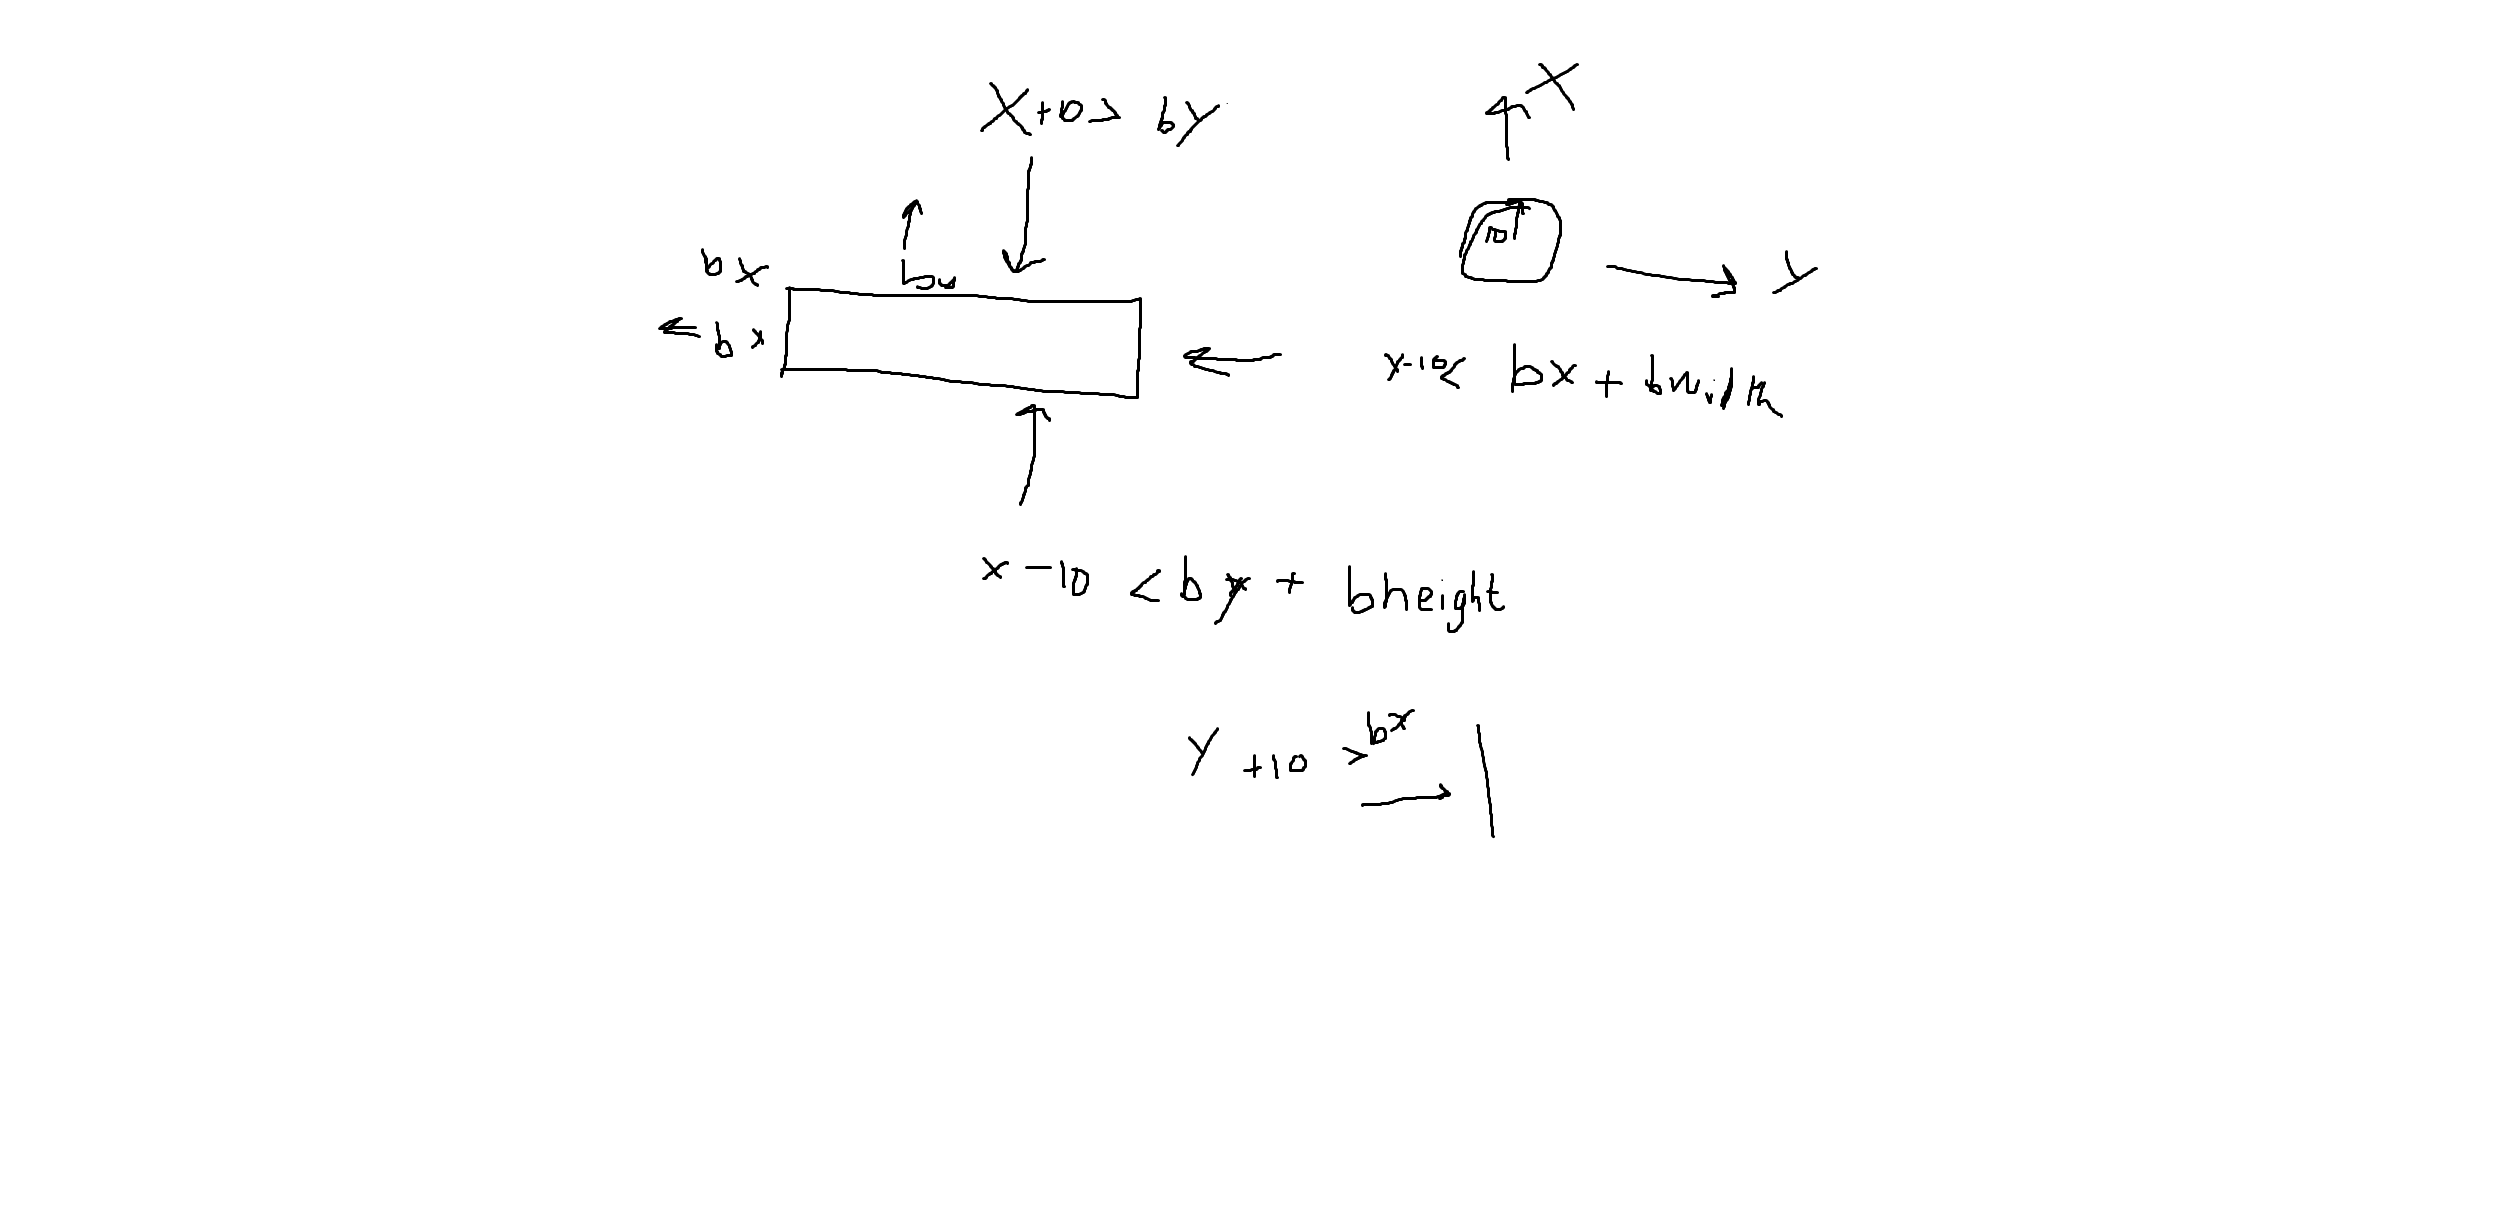 X
X+10> by
10
bx
y
by
bx
x-10< bx + bwidth
x -10 < by + bheight
y +10 > bx